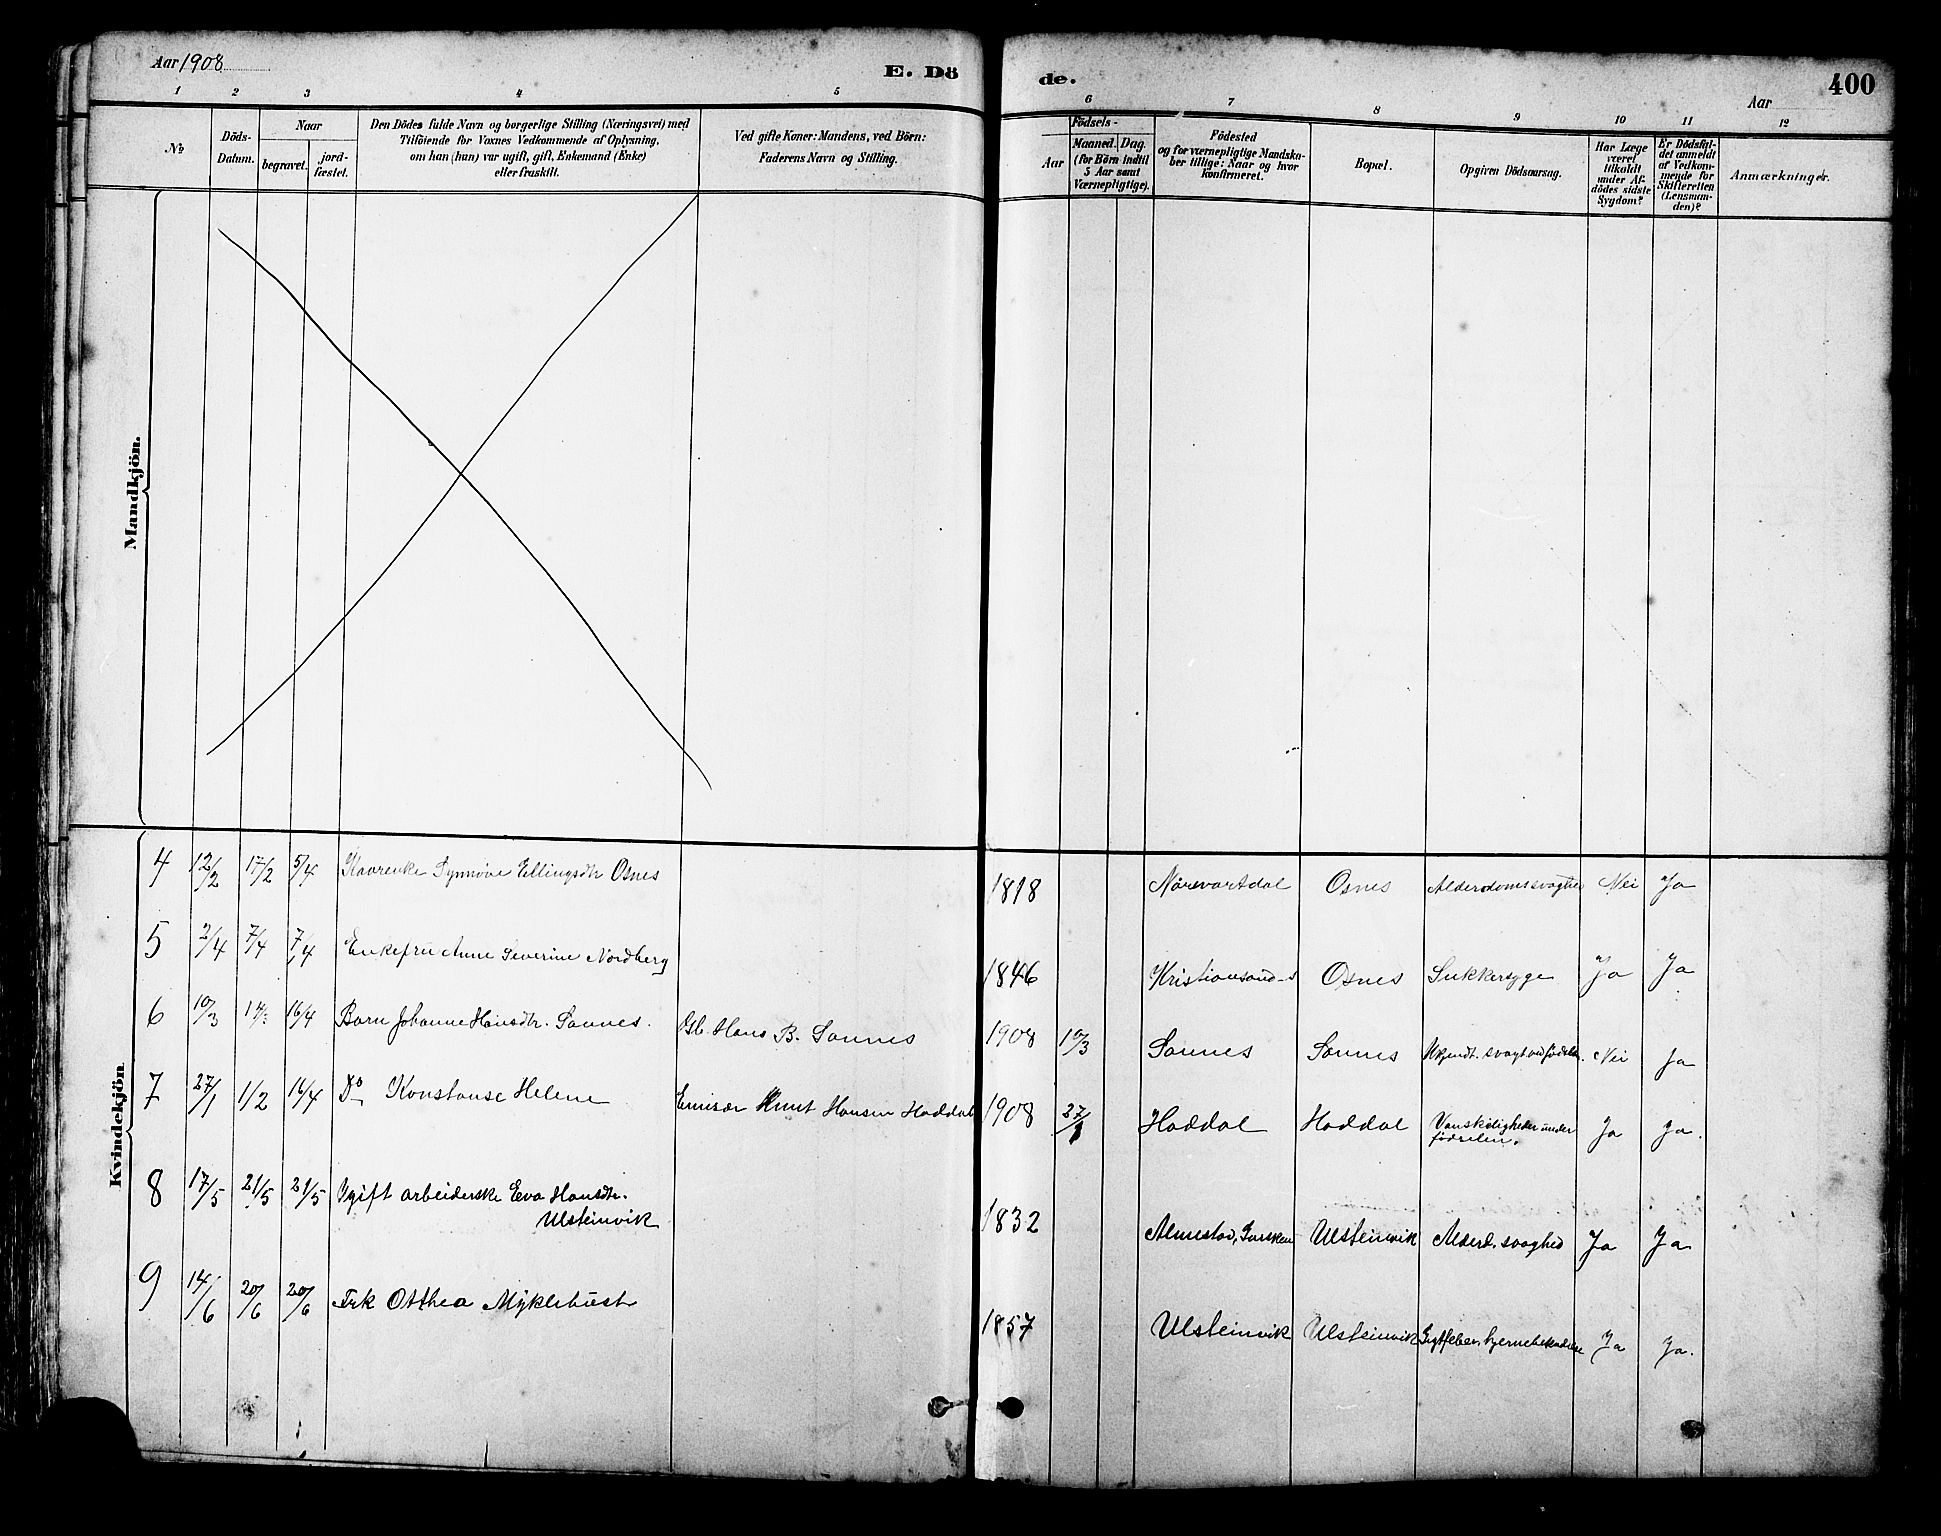 Aar 1908
E. Dö
de.
400
Aar
1 2 3 4 5 6 7 8 9 10 11 12
No
Döds-
Datum.
Naar
begravet.
jord-
fæstet.
Den Dödes fulde Navn og borgerlige Stilling (Næringsvei) med
Tilföiende for Voxnes Vedkommende af Oplysning,
om han (hun) var ugift, gift, Enkemand (Enke)
eller fraskilt.
Ved gifte Koner: Mandens, ved Börn:
Faderens Navn og Stilling.
Födsels-
Aar
Maaned.
Dag.
(for Börn indtil
5 Aar samt
Værnepligtige).
Födested
og for værnepligtige Mandska-
ber tillige: Naar og hvor
konfirmeret.
Bopæl.
Opgiven Dödsaarsag.
Har Læge
været
tilkaldt
under Af-
dödes sidste
Sygdom?
Er Dödsfal-
det anmeldt
af Vedkom-
mende for
Skifteretten
(Lensman-
den)?
Anmærkninger.
Mandkjön.
Kvindekjön.
4 12/2 17/2 5/4 Kaarenke Synnöve Ellingsdtr Osnes 1818 Osnes Alderdomssvaghed Nei Ja
5 2/4 7/4 7/4 Enkefru Anne Severine Nordberg 1846 Kristiansund Osnes Sukkersyge Ja Ja
6 10/3 14/3 16/4 Barn Johanne Hansdtr. Saunes. Gb. Hans B. Saunes 1908 10/3 Saunes Saunes Ukjendt. svagt ved födselen. Nei Ja
7 27/1 1/2 16/4 Do Konstanse Helene Emisær Knut Hansen Haddal 1908 27/1 Haddal Haddal Vanskeligheder under
födselen. Ja Ja.
8 17/5 21/5 21/5 Ugift arbeiderske Eva Hansdtr.
Ulsteinvik 1832 Almestad, Gursken Ulsteinvik Alderd. svaghed Ja Ja
9 14/6 20/6 20/6 Frk Otthea Myklebust 1857 Ulsteinvik Ulsteinvik Ja Ja.